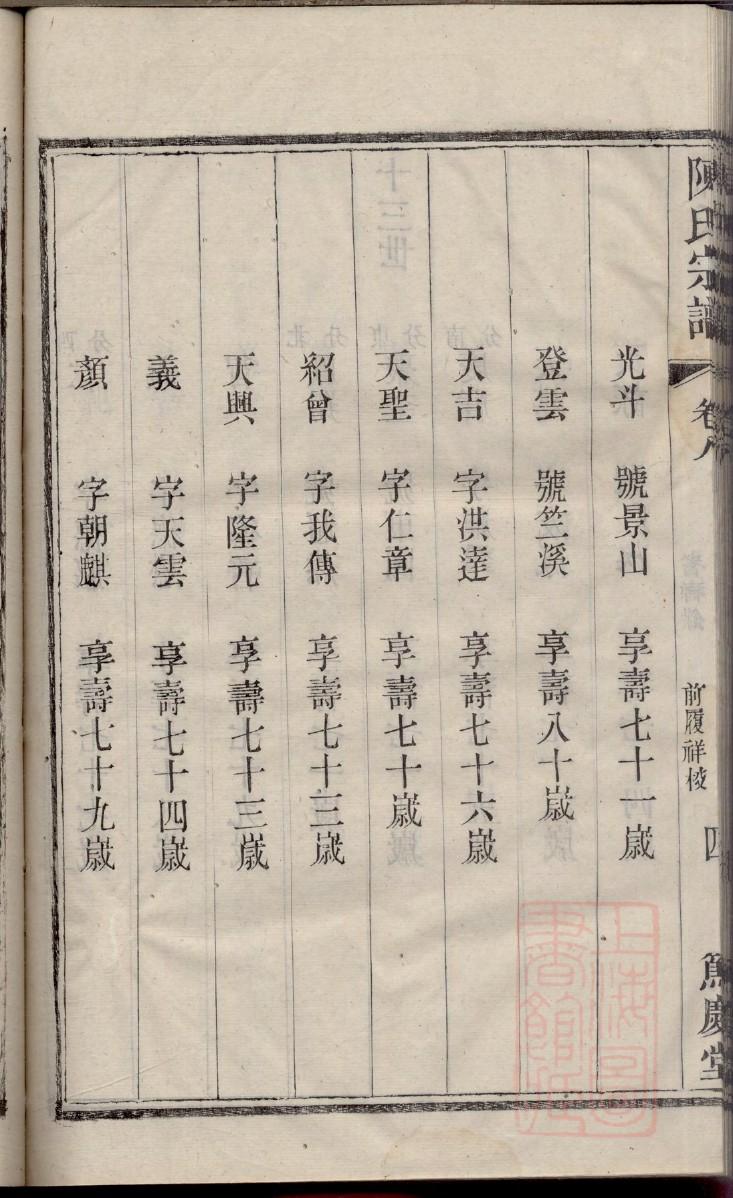 陳氏宗譜 卷八 前履祥棱 四 篤慶堂
光斗 號景山 享壽七十一歲
登雲 號竺溪 享壽八十歲
天吉 字洪達 享壽七十六歲
天聖 字仁章 享壽七十歲
紹曾 字我傳 享壽七十三歲
天興 字隆元 享壽七十三歲
義 字天雲 享壽七十四歲
顏 字朝麒 享壽七十九歲
上海圖書館藏